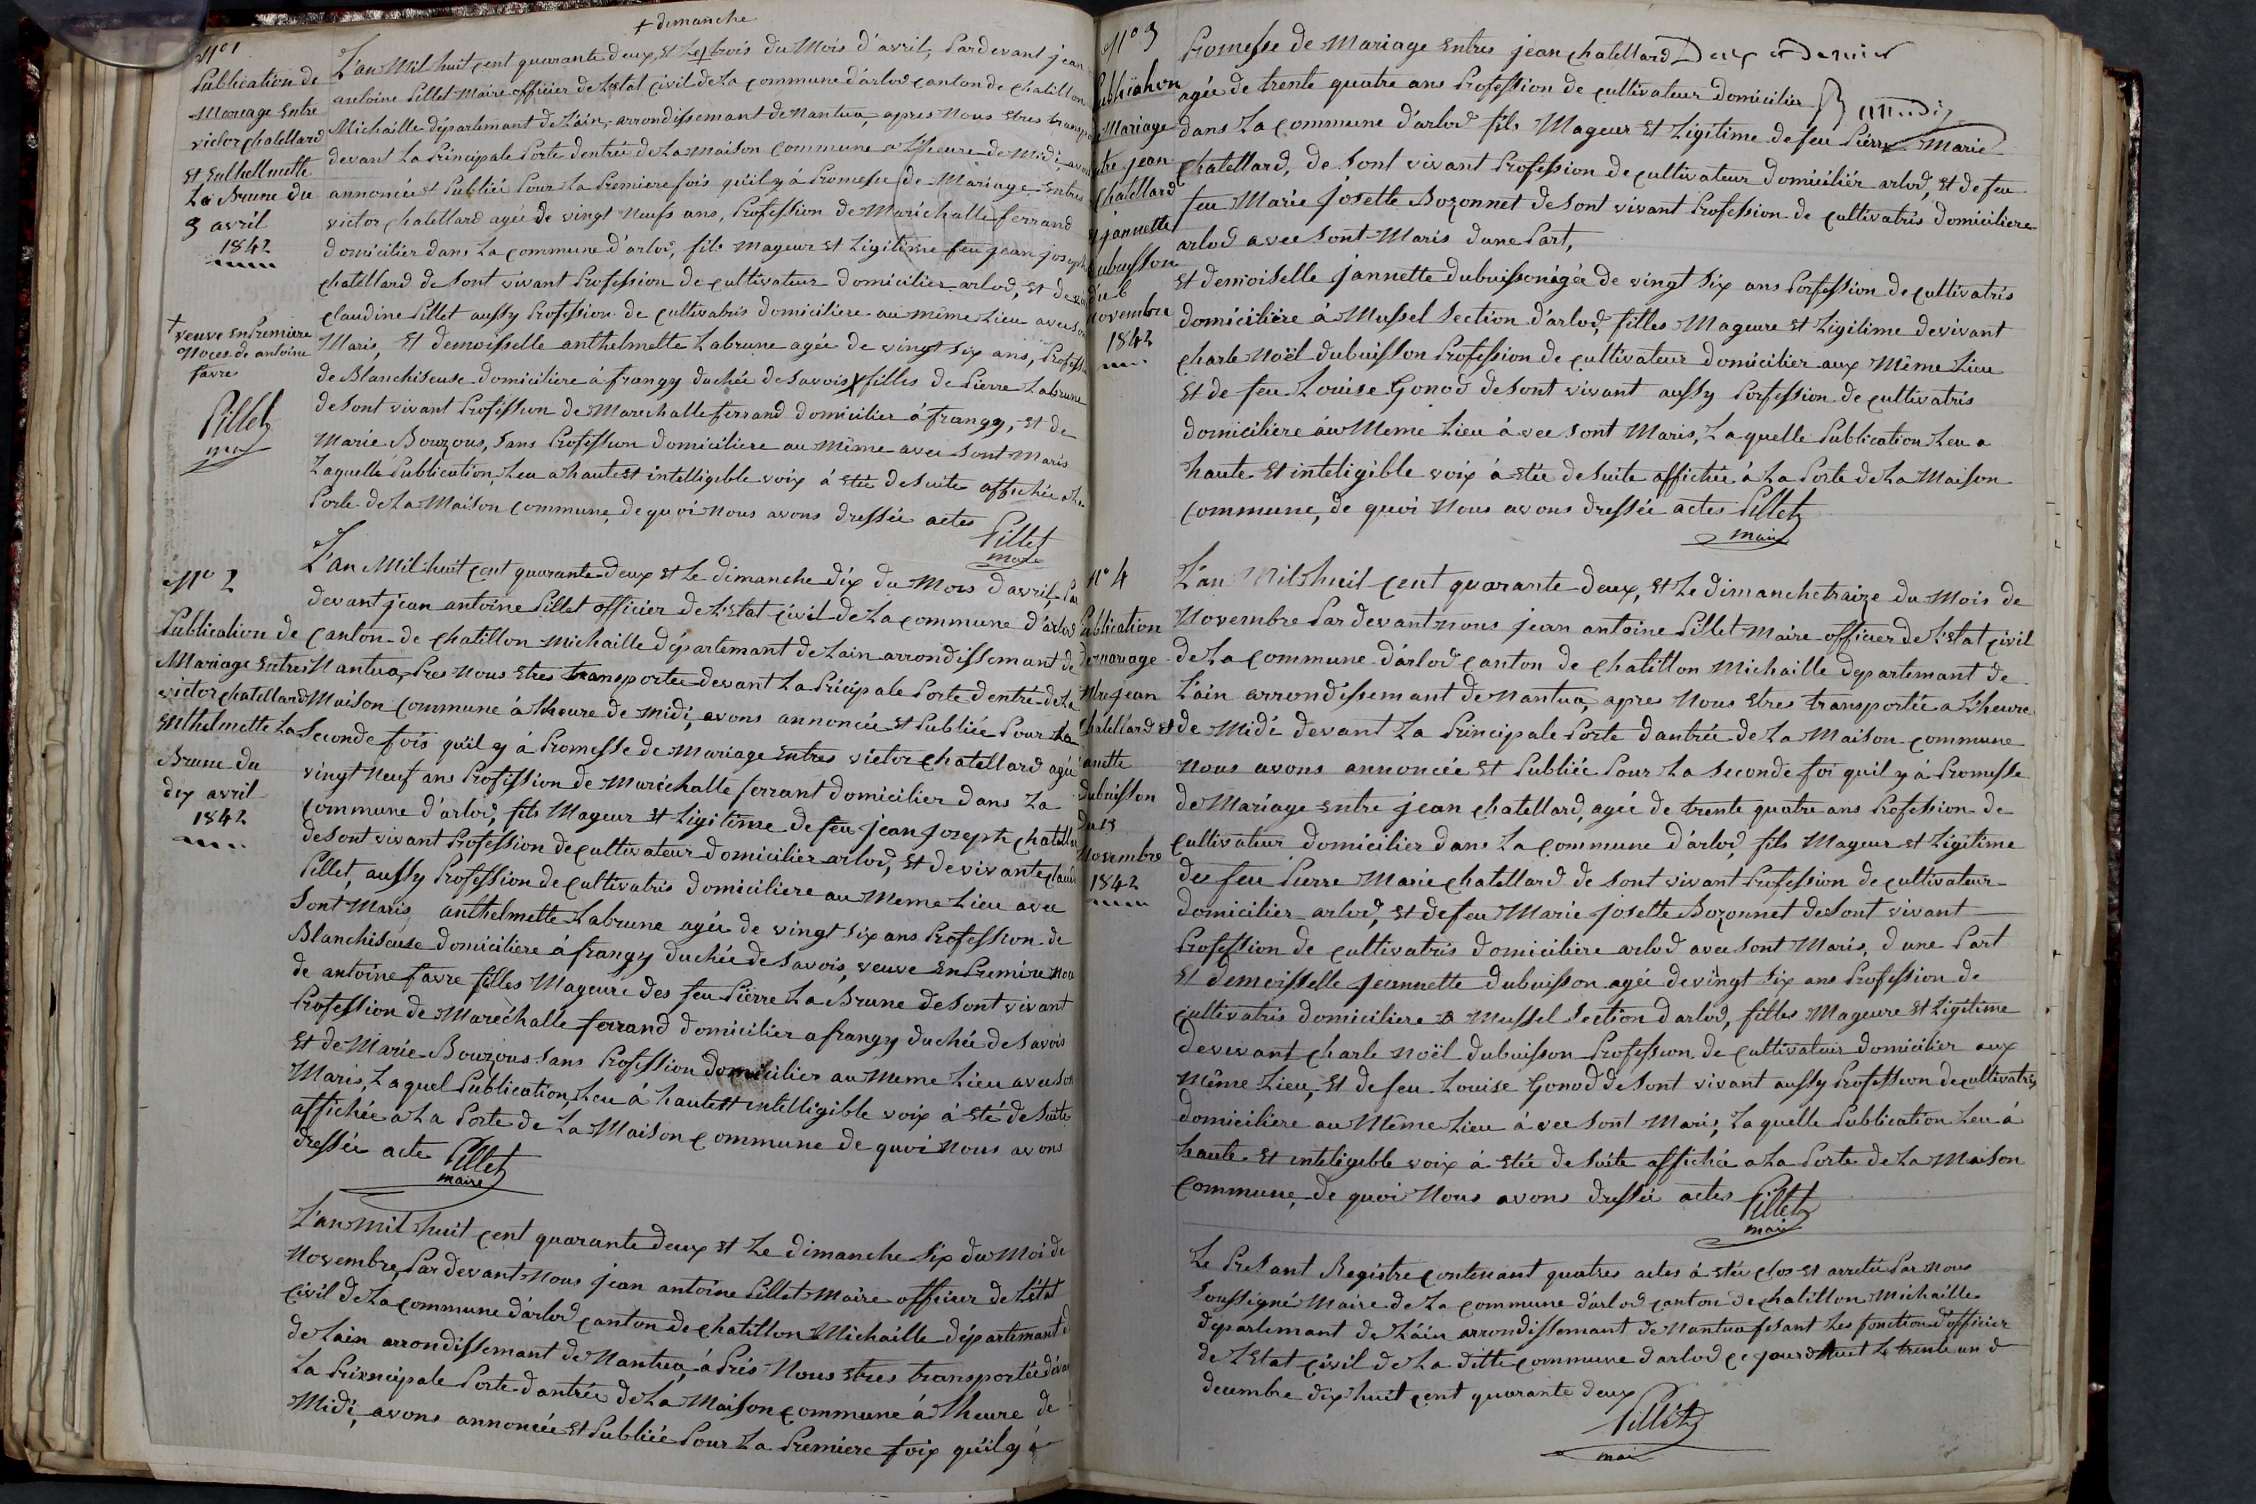 + dimanche
N° 1
Publication de
Mariage Entre
victor chatellard
Et Enthelmette
La Brune du
3 avril
1842
L'an Mil huit cent quarante deux, Et Le + trois du Mois d'avril, Pardevant jean
antoine Pillet Maire officier de L'Etat Civil de La Commune d'arlod canton de chatillon
Michaille département de L'ain, arrondissemant de Nantua, apres Nous Etres transpor
devant La Principale Porte dentrée de La Maison Commune a L'heure de Midi, avon
annoncée Et Publiée Pour La Premiere fois qu'il y á Promesse de Mariage Entres
victor chatellard agée de vingt Neufs ans, Profession de Maréchalle ferrand
domicilier dans La Commune d'arlod, fils Mageur Et Ligitime feu jean joseph
chatellard de Sont vivant Profession de cultivateur domicilier arlod, Et de
claudine Pillet aussy Profession de cultivatris domiciliere au même Lieu avec son
Maris, Et demoisselle anthelmette Labrune agée de vingt Six ans, Professi
de Blanchiseuse domiciliere á frangy duchée de Savois X filles de Pierre Labrune
de Sont vivant Profession de Marechalle ferrand domicilier á frangy, Et de
Marie Bouzous, Sans Profession domiciliere au Même avec Sont Maris
Laquelle Publication, Leu a hautest intelligible voix á étée de Suite affichée a La
Porte de La Maison Commune, de quoi Nous avons dressée actes Pillet
maire
+ veuve En Premiere
Noces de antoine
favre
Pillet
N° 2
Publication de
Mariage Entres
victor chatellard
Enthelmette La
Brune du
dix avril
1842
L'an Mil huit cent quarante deux Et Le dimanche dix du Mois d'avril, Par
devant jean antoine Pillet officier de L'Etat Civil de La Commune d'arlod
Canton de chatillon Michaille département de Lain arrondissemant de
Nantua, Pres Nous Etres transportée devant La Pricipale Porte d'entrée de La
Maison Commune á Lheure de Midi, avons annoncée Et Publiée Pour La
Seconde fois qu'il y á Promesse de Mariage Entres victor chatellard agée
vingt Neuf ans Profession de Maréchalle ferrant domicilier dans La
Commune d'arlod, fils Mageur Et Ligitime de feu jean joseph chatella
de Sont vivant Profession de cultivateur domicilier arlod, Et de vivante claudi
Pillet, aussy Profession de cultivatris domiciliere au Meme Lieu avec
Sont Maris, anthelmette Labrune agée de vingt Six ans Profession de
Blanchiseuse domiciliere á frangy duchée de Savois, veuve En Premiere Noce
de antoine favre filles Mageure des feu Pierre La Brune de Sont vivant
Profession de Maréchalle ferrand domicilier a frangy duchée de Savois
Et de Marie Bouzous Sans Profession domicilier au Meme Lieu avec Son
Maris, Laquel Publication, Leu á hautest intelligible voix á Eté de Suite
affichée a La Porte de La Maison Commune de quoi Nous avons
dressée acte Pillet
maire
L'an mil huit cent quarante deux Et Le dimanche Six du Moi de
Novembre, Par devant Nous jean antoine Pillet Maire officier de L'état
Civil de La Commune d'arlod canton de chatillon Michaille département
de Lain arrondissemant de Nantua, á Prés Nous Etres transportée deva
La Prixncipale Porte d'antrée de La Maison Commune á Lheure de
Midi, avons annoncée Et Publiée Pour La Premiere foix qu'il y á
N° 3
Publication
Mariage
tre jean
Chatellard
Et jannette
Dubuisson
du 6
Novembre
1842
Promesse de Mariage Entres jean chatellard
agée de trente quatre ans Profession de cultivateur domicilier
dans La Commune d'arlod fils Mageur Et Ligitime de feu Pierre Marie
chatellard, de Sont vivant Profession de cultivateur domiciliér arlod, Et de feu
feu Marie josette Bozonnet de Sont vivant Profession de cultivatris domiciliere
arlod avec Sont Maris dune Part,
Et demoiselle jannette dubuisson égée de vingt Six ans Porfession de cultivatris
domiciliére á Mussel Section d'arlod, filles Mageure Et Ligitime devivant
charle Noël dubuisson Profession de cultivateur domicilier aux Même Lieu
Et de feu Louise Gonod de Sont vivant aussy Porfession de cultivatris
domiciliere áu Meme Lieu á vec Sont Maris, Laquelle Publication Leu a
haute Et inteligible voix á Etée de Suite affichée á La Porte de La Maison
Commune, de quoi Nous avons dressée actes Pillet
maire
N° 4
Publication
de mariage
Entre jean
Chatellard Et
janette
dubuisson
Du 13
Novembre
1842
L'an Mil huit Cent quarante deux, Et Le dimanche traize du Mois de
Novembre Par devant nous jean antoine Pillet Maire officier de L'Etat Civil
de La Commune d'arlod canton de chatillon Michaille departemant de
L'ain arrondissemant de Nantua, apres Nous Etres transportée a L'heure
de Midi devant La Principale Porte dantrée de La Maison commune
Nous avons annoncée Et Publiée Pour La Seconde foi qu'il y á Promesse
de Mariage Entre jean chatellard, agée de trente quatre ans Profession de
cultivateur domicilier dans La Commune d'arlod, fils Mageur Et Ligitime
de feu Pierre Marie chatellard de Sont vivant Profession de cultivateur
domicilier arlod, Et de feu Marie josette Bozonnet de Sont vivant
Profession de cultivatris domiciliere arlod avec Sont Maris, dune Part
Et demoisselle jeannette dubuisson agée de vingt Six ans Profession de
cultivatris domiciliere a Mussel Section d'arlod, filles Mageure Et Ligitime
de vivant charle Noël dubuisson Profession de cultivateur domicilier aux
Même Lieu, Et de feu Louise Gonod de Sont vivant aussy Profession de cultivatris
domiciliere au Même Lieu á vec Sont Maris, Laquelle Publication Leu á
haute Et inteligible voix á Etée de Suite affichée a La Porte de La Maison
Commune, de quoi Nous avons dressée actes Pillet
maire
Le Presant Registre contenant quatres actes á Etée clos Et arretée Par Nous
Soussigné Maire de La Commune d'arlod canton de chatillon Michaille
departemant de L'ain arrondissemant de Nantua fesant Les fonction d'officier
de L'Etat Civil de La ditte commune d'arlod ce jourd'huit Le trente un d
decembre dix huit cent quarante deux
Pillet
maire